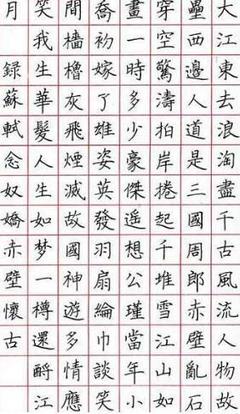 大江東去浪淘盡千古風流人物故
壘西邊人道是三國周郎赤壁亂石
穿空驚濤拍岸捲起千堆雪江山如
畫一時多少豪傑遙想公瑾當年小
喬初嫁了雄姿英發羽扇綸巾談笑
間檣櫓灰飛煙滅故國神遊多情應
笑我生華髮人生如夢一樽還酹江
月 錄蘇軾念奴嬌赤壁懷古